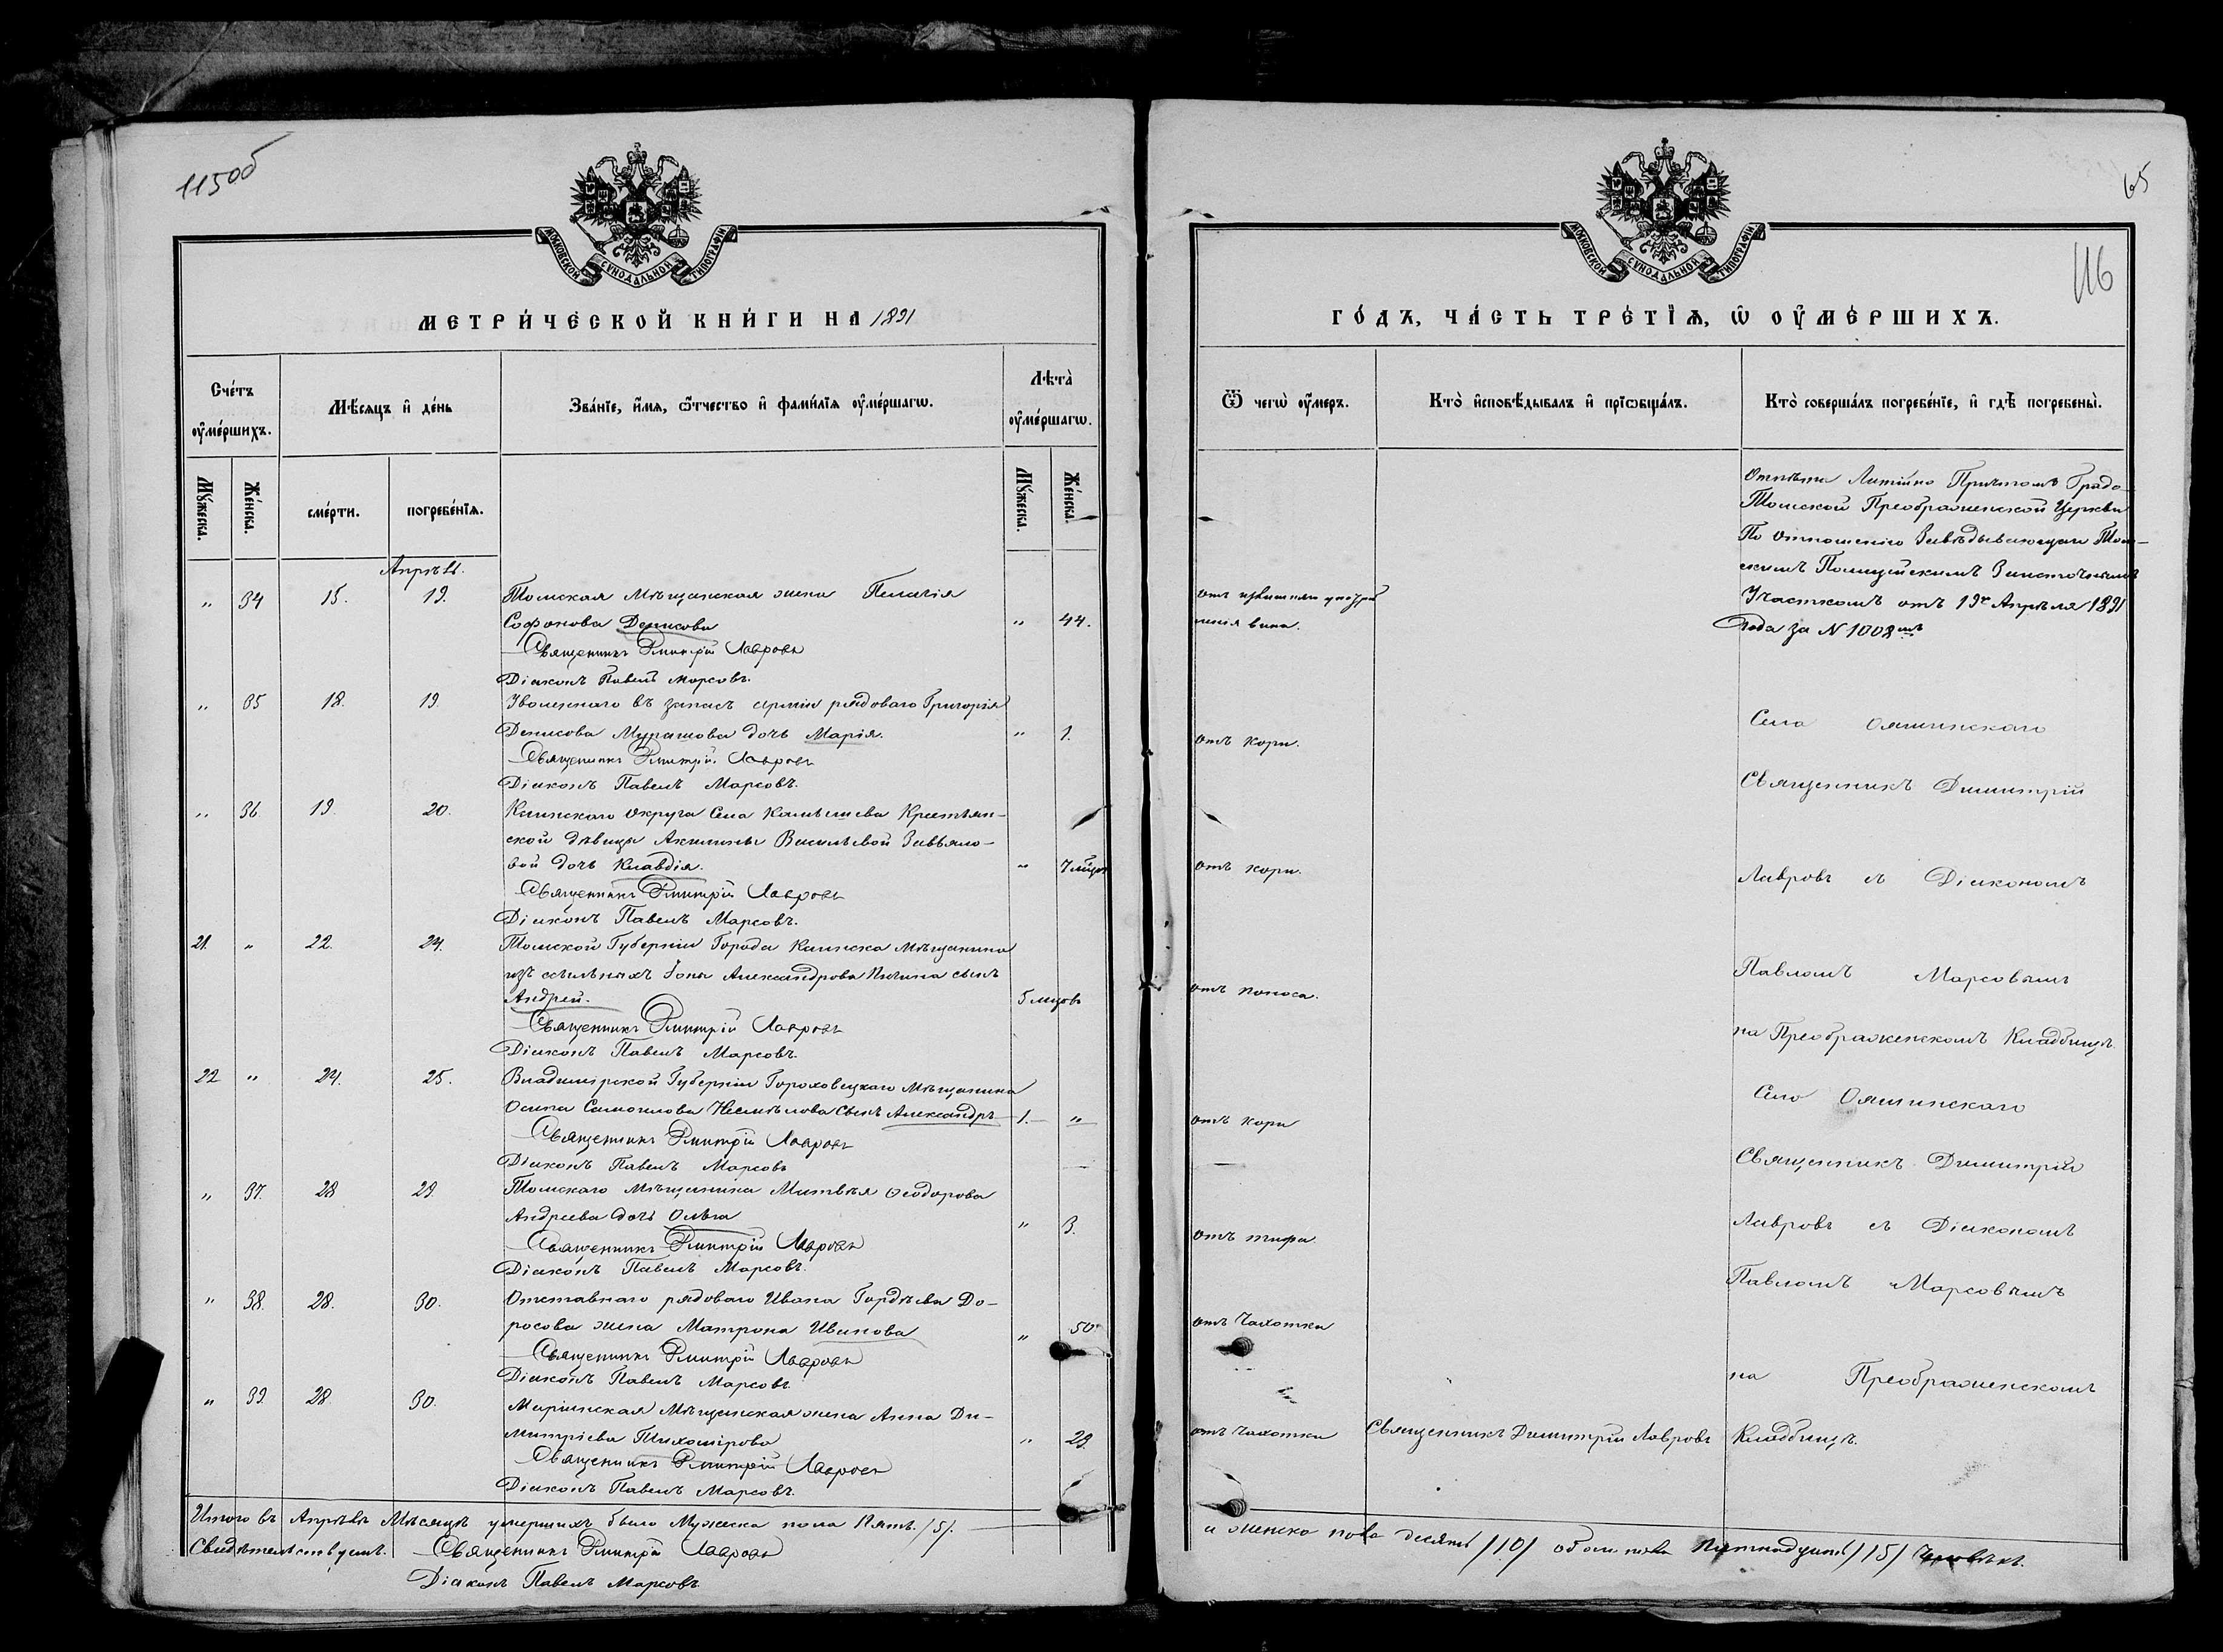 115об
МОСКОВСКОЙ СѴНОДАЛЬНОЙ ТИПОГРАФІИ
МЕТРИЧЕСКОЙ КНИГИ НА 1891
Счетъ ѹмершихъ.
Мѣсяцъ и день
Званіе, имя, ѿчество и фамилія ѹмершагѡ.
Лѣта ѹмершагѡ.
Мужеска.
Женска.
смерти.
погребенія.
Мужеска.
Женска.
Апрѣль.
„ 34 15. 19. Томская Мѣщанская жена Пелагія
Софонова Денисова „ 44.
Священникъ Димитрій Лавровъ
Діаконъ Павелъ Марсовъ.
„ 35 18. 19. Уволеннаго въ запасъ арміи рядоваго Григорія
Денисова Мурашова дочь Марія. „ 1.
Священникъ Димитрій Лавровъ
Діаконъ Павелъ Марсовъ.
„ 36 19. 20. Каинскаго округа Села Камышева Крестьян-
ской дѣвицы Акилины Васильевой Завьяло-
вой дочь Клавдія. „ 7 мѣцов
Священникъ Димитрій Лавровъ
Діаконъ Павелъ Марсовъ.
21. „ 22. 24. Томской Губерніи Города Каинска Мѣщанина
изъ ссыльныхъ Александрова сынъ
Андрей. 5 мцовъ
Священникъ Димитрій Лавровъ
Діаконъ Павелъ Марсовъ.
22 „ 24. 25. Владимірской Губерніи Гороховецкаго Мѣщанина
Осипа Самоилова Несмѣлова Сынъ Александръ 1. „
Священникъ Димитрій Лавровъ
Діаконъ Павелъ Марсовъ
„ 37. 28 29. Томскаго Мѣщанина Матвѣя Ѳеодорова
Андреева дочь Ольга „ 3.
Священникъ Димитрій Лавровъ
Діаконъ Павелъ Марсовъ.
„ 38. 28. 30. Отставнаго рядоваго Ивана Гордѣева До-
росова жена Матрона Иванова „ 50
Священникъ Димитрій Лавровъ
Діаконъ Павелъ Марсовъ
„ 39. 28. 30. Маріинская Мѣщанская жена Анна Ди-
митріева Тихомірова „ 29.
Священникъ Димитрій Лавровъ
Діаконъ Павелъ Марсовъ.
Итого въ Апрѣлѣ Мѣсяцѣ умершихъ было Мужеска пола Пять /5/.
Свидѣтельствуемъ. Священникъ Димитрій Лавровъ
Діаконъ Павелъ Марсовъ.
65
116
МОСКОВСКОЙ СѴНОДАЛЬНОЙ ТИПОГРАФІИ
ГОДЪ, ЧАСТЬ ТРЕТІЯ, Ѡ ОУМЕРШИХЪ.
Ѿ чегѡ ѹмеръ.
Кто исповѣдывалъ и пріѡбщалъ.
Кто совершалъ погребеніе, и гдѣ погребены.
Отпѣта Литійно Причтомъ Градо-
Томской Преображенской Церкви
По отношенію Завѣдывающаго Том-
скимъ Полицейскимъ
Участкомъ отъ 19го Апрѣля 1891
Года за N 1008мъ
отъ излишняго употреб
ленія вина.
отъ кори.
отъ кори.
отъ поноса.
отъ кори
отъ тифа.
отъ чахотки
отъ чахотки Священникъ Димитрій Лавровъ
Села Ояшинскаго
Священникъ Димитрій
Лавровъ съ Діакономъ
Павломъ Марсовымъ
на Преображенскомъ Кладбищѣ.
Села Ояшинскаго
Священникъ Димитрій
Лавровъ съ Діакономъ
Павломъ Марсовымъ
на Преображенскомъ
Кладбищѣ.
и женска пола десять /10/ обоего пола Пятнадцать /15/ человѣкъ.